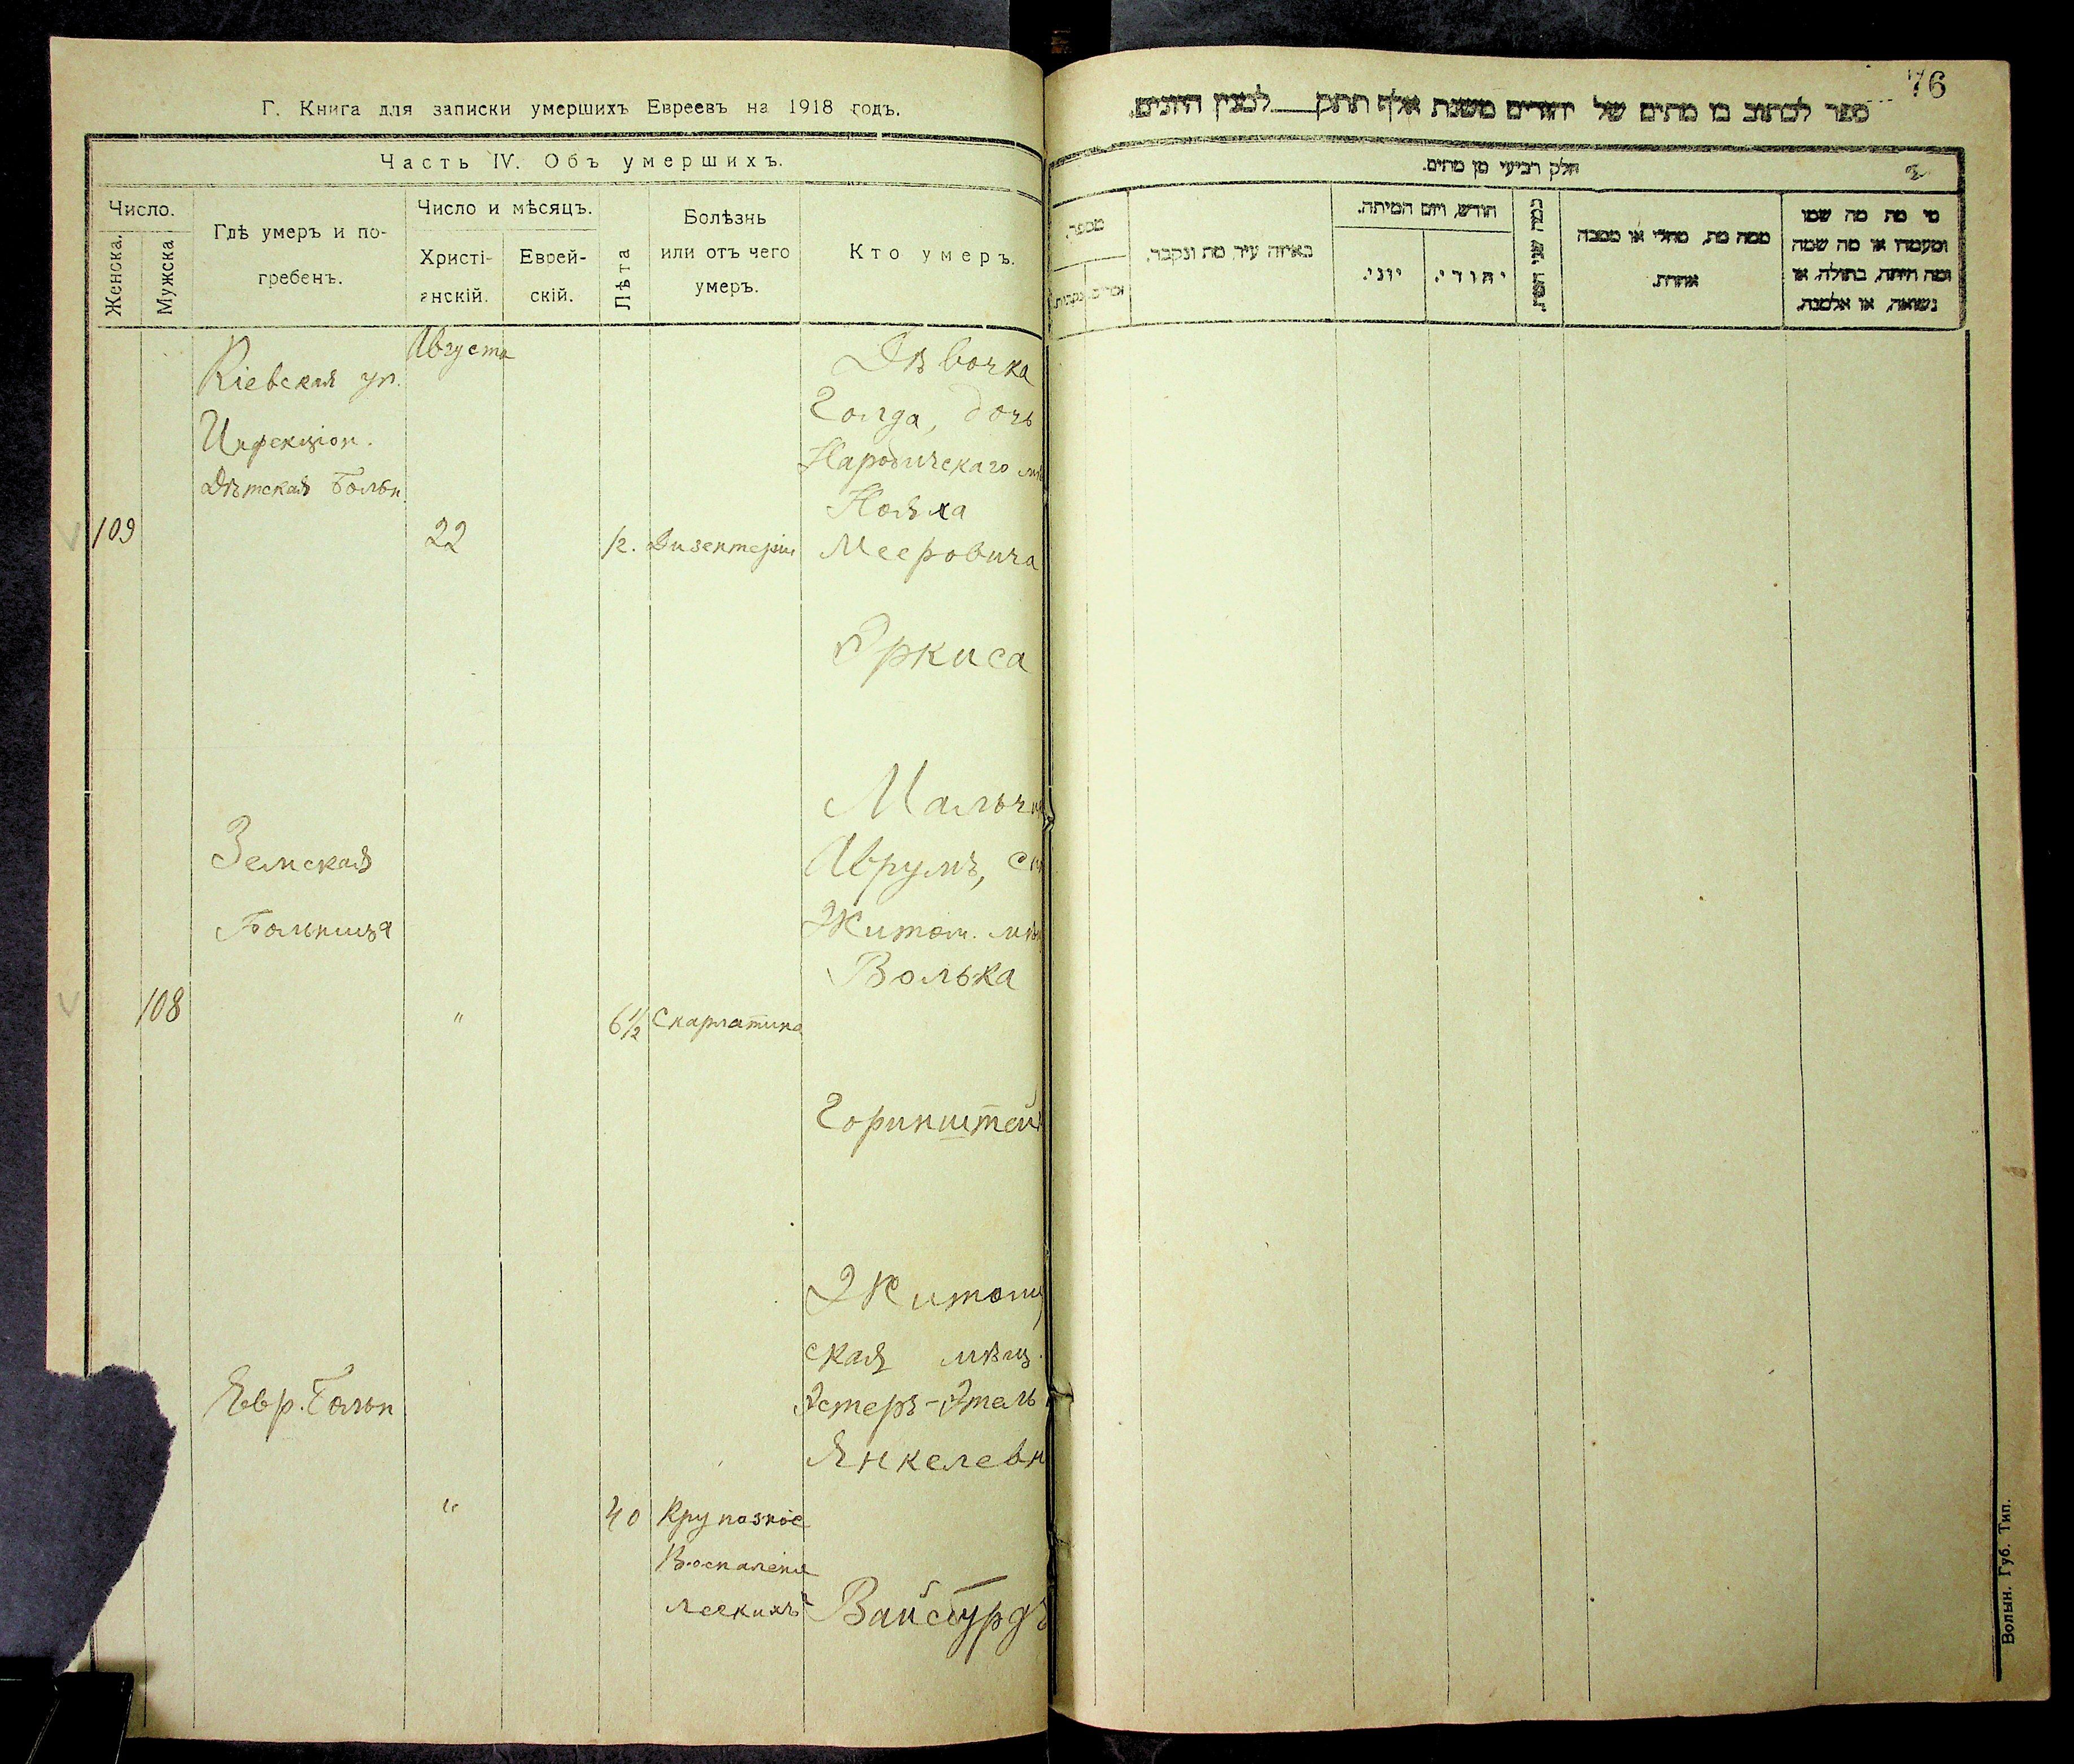 Г. Книга для записки умершихъ Евреевъ на 1918 годъ.
Часть IV. Объ умершихъ.
Число.
Женска.
Мужска
Гдѣ умеръ и по-
гребенъ.
Число и мѣсяцъ.
Христі-
анскій.
Еврей-
скій.
Лѣта
Болѣзнь
или отъ чего
умеръ.
Кто умеръ.
Августа
Кіевская ул.
Инфекціон.
Дѣтская Больн.
109
22
1/2.
Дизентерія
Дѣвочка
Голда, дочь
Народичскаго
Мееровича
Эркиса
Земская
Больница
108
"
6 1/2
Скарлатина
Аврумъ,
Житом.
Волька
Горинштей
Евр. Больн
"
40
Крупозное
Воспаленіе
легкихъ
Житом
ская мѣщ.
Эстеръ-Этель
Янкелевн
Вайсбурдъ
76
ספר לכתוב בו מתים של יהודים משנת אלף תתק לכונין היונים.
חלק רביעי מן מתים.
מספר.
זכרים.
נקבות.
באיזה עיר, מת ונקבר.
חודש, ויום המיתה.
יוני.
יהודי.
כמה שני
ממה מת, מחלי או מסבה
אחרת.
מי מת מה שמו
ומעמדו או מה שמה
ומה היתה, בתולה, או
נשואה, או אלמנה.
Волын. Губ. Тип.